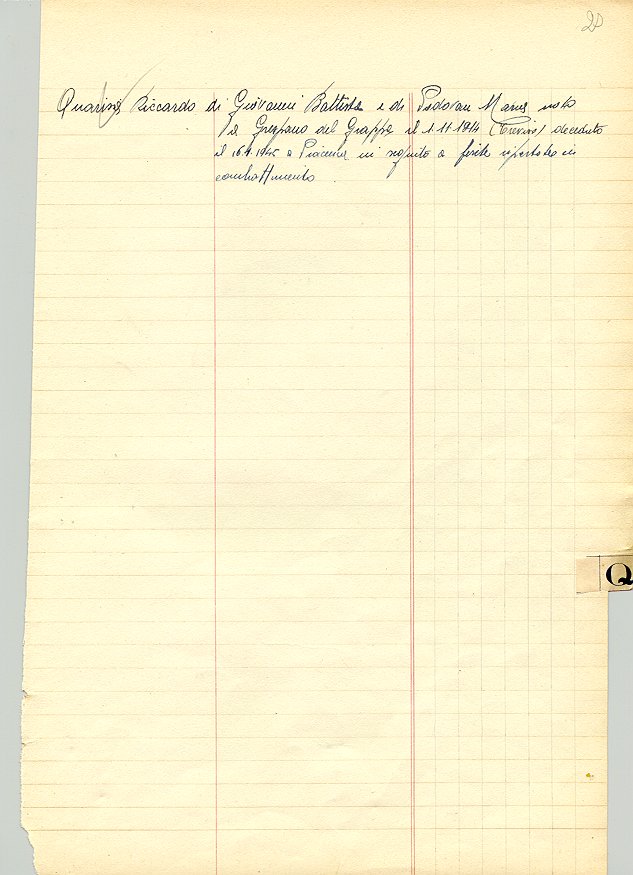 20
Quarin Riccardo di Giovanni Battista e di Pedovan Maria nato
a Crespano del Grappa il 1.11.1914 (Treviso) deceduto
il 16.4.1945 a Piacenza in seguito a ferite riportate in
combattimento.
Q